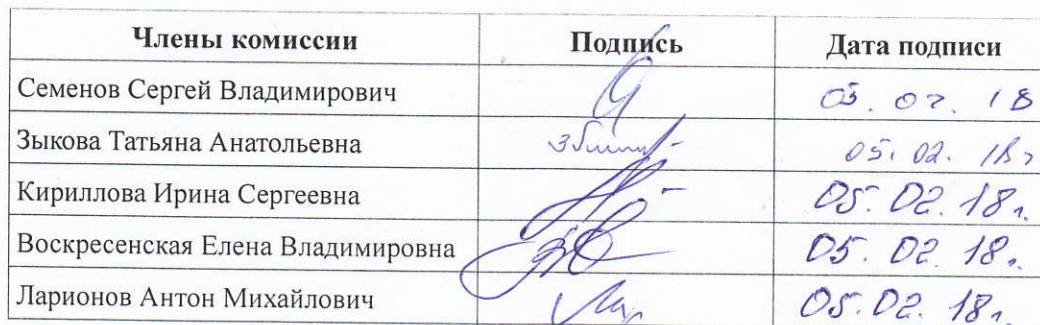 Члены комиссии Подпись Дата подписи
Семенов Сергей Владимирович 05.02.18
Зыкова Татьяна Анатольевна 05.02.18г
Кириллова Ирина Сергеевна 05.02.18г.
Воскресенская Елена Владимировна 05.02.18г.
Ларионов Антон Михайлович 05.02.18г.